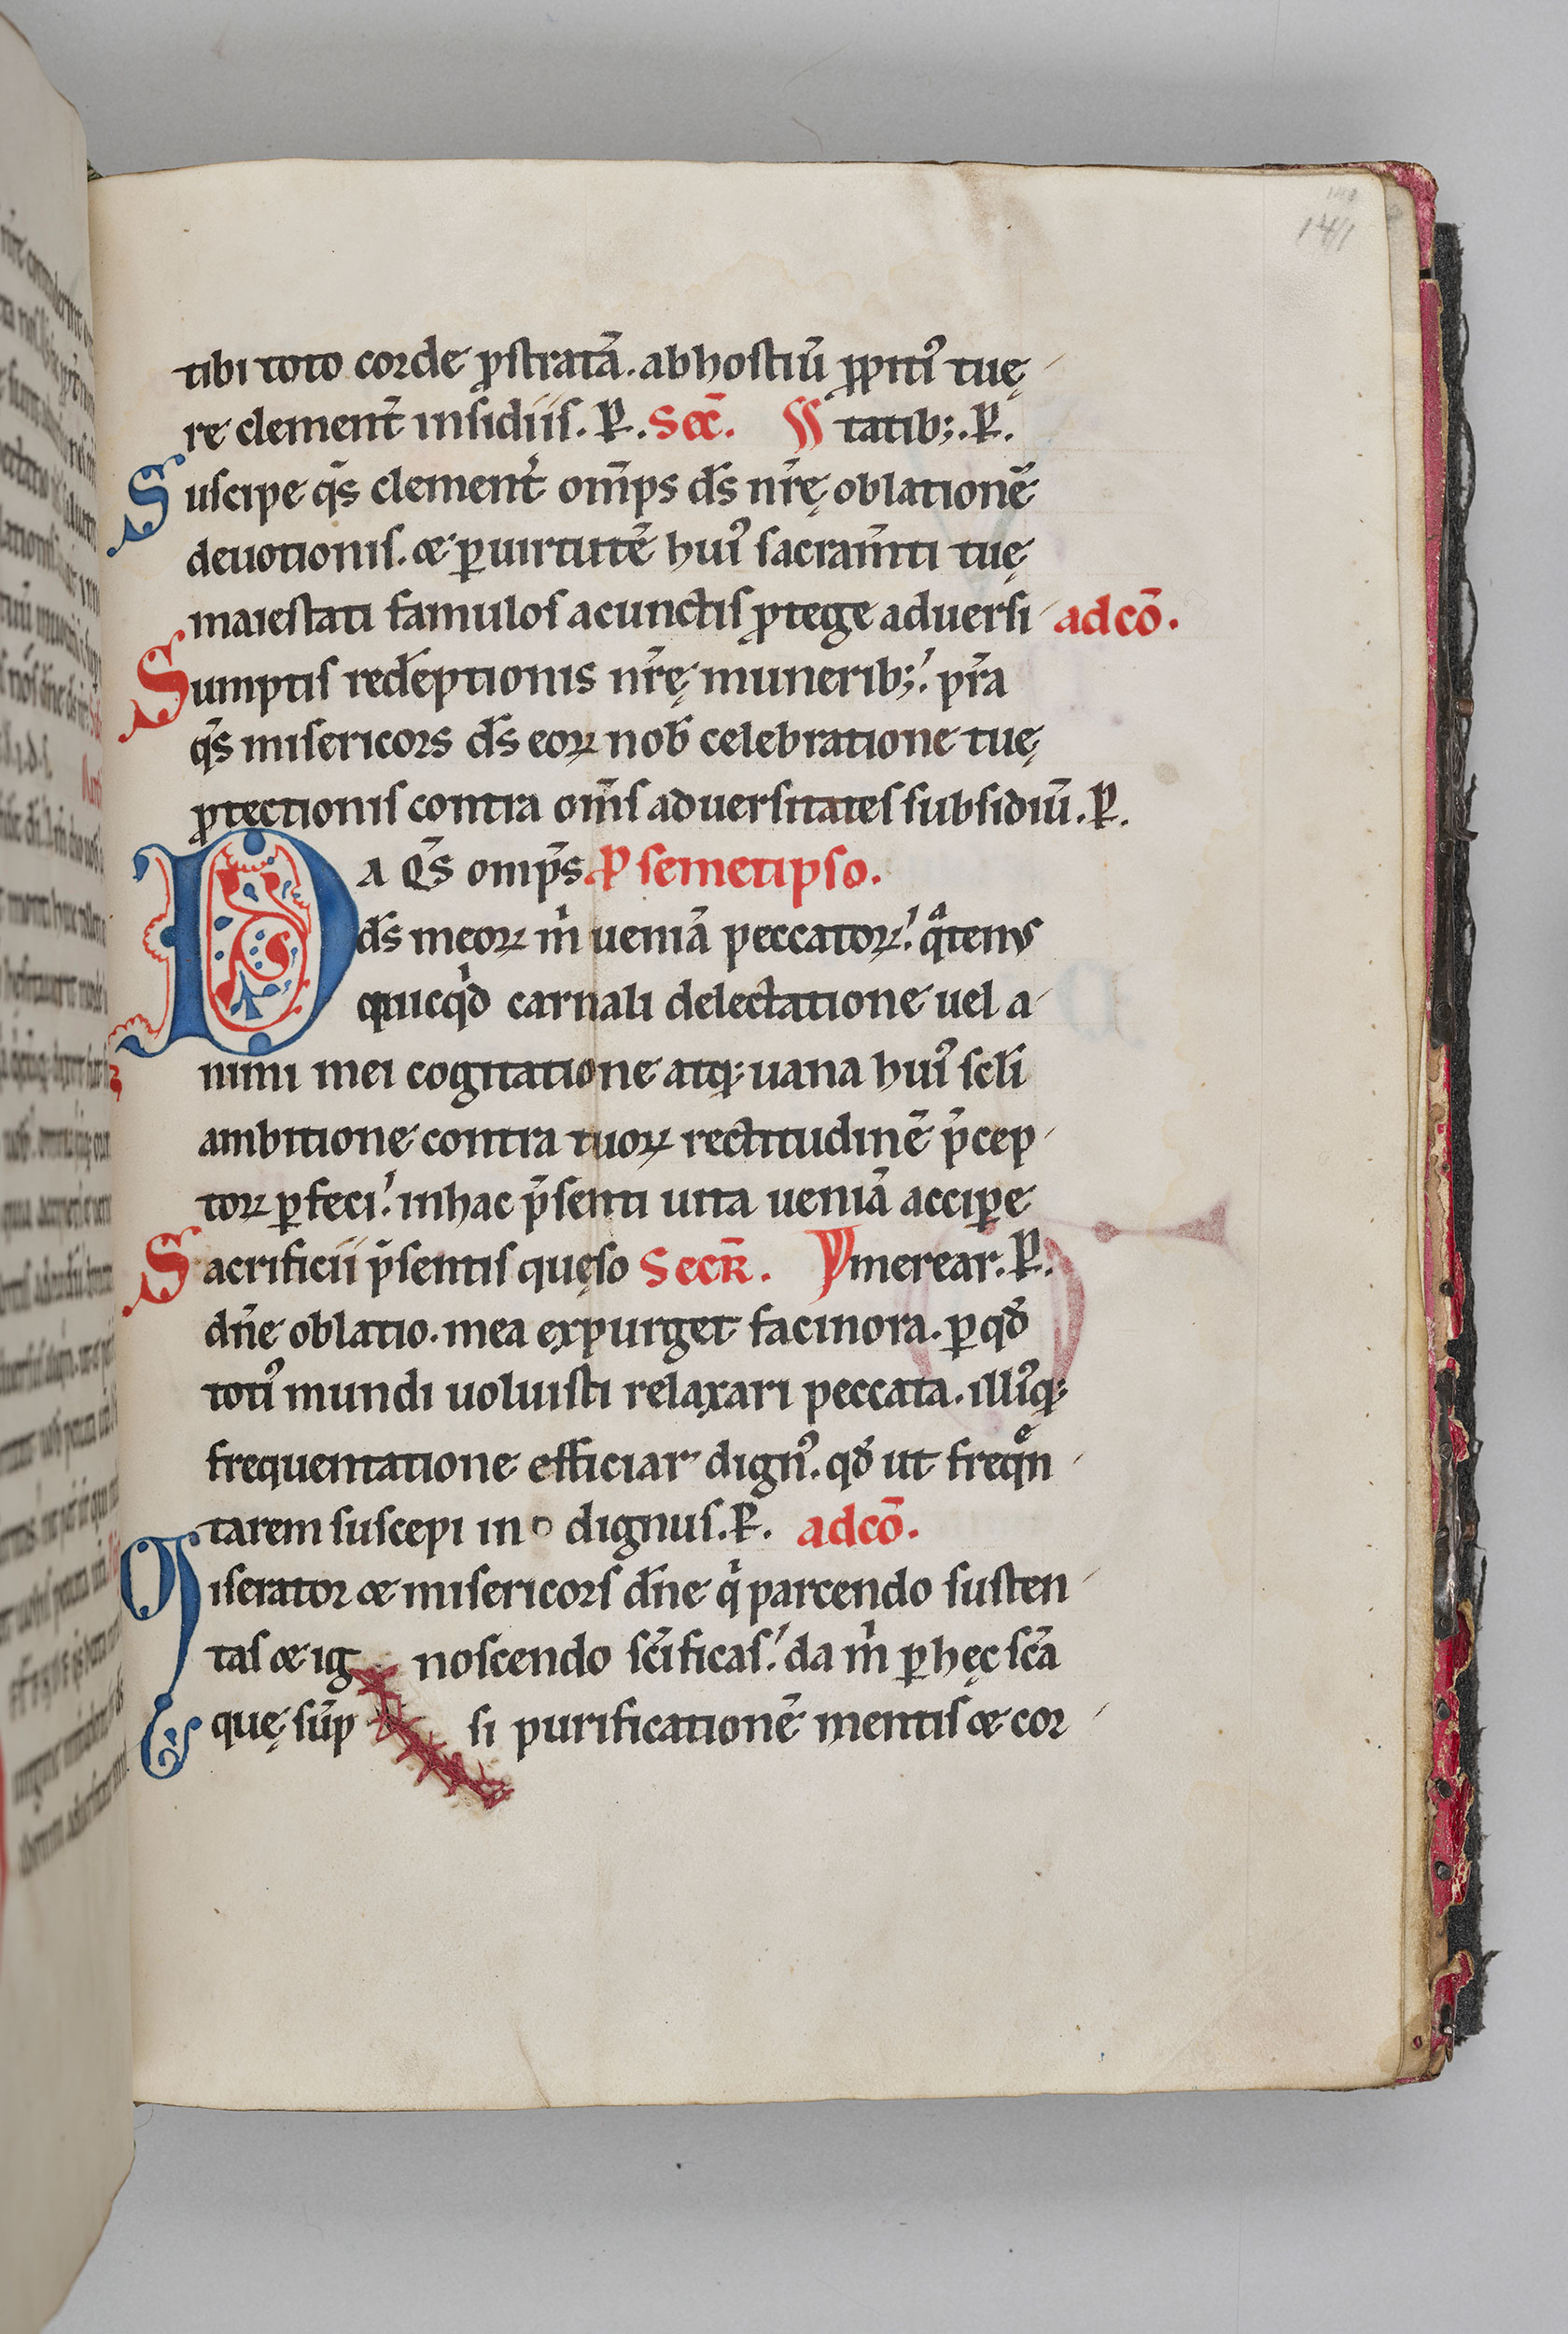 141
tibi toto corde ꝓstratā. ab hostiū ꝓpitiꝰ tuę
re clement̄ insidiis. P̱. Sec̄. tatib;. P̱.
Suscipe q̄s clement̉ om̄ps ds̄ nr̄ę oblationē
deuotionis. & ꝑ uirtutē huiꝰ sacram̄ti tuę
maiestati famulos a cunctis ꝓtege aduersi ad cō.
Sumptis red̄eptionis nr̄ę munerib; p̄ra
q̄s misericors ds̄ eoꝝ nob̄ celebratione tuę
ꝓtectionis contra om̄s aduersitates subsidiū. P̱.
Da q̄s omp̄s P̱ semetipso.
ds̄ meoꝝ m̉ ueniā peccatoꝝ qͣtenus
quicqͥd carnali delectatione uel a
nimi mei cogitatione atq; uana huiꝰ sc̄li
ambitione contra tuoꝝ rectitudinē p̄cep
toꝝ ꝑfeci in hac p̄senti uita ueniā accipe
Sacrificii p̄sentis quęso Secr̄. merear. P̱.
dn̄e oblatio. mea expurget facinora. ꝑ qd̄
totiꝰ mundi uoluisti relaxari peccata. illiꝰq;
frequentatione efficiar dignꝰ. qd̄ ut freqͤn
tarem suscepi in dignus. P̱. ad cō.
Miserator & misericors dn̄e qͥ parcendo susten
tas & ig noscendo sc̄ificas da m̉ ꝑ hęc sc̄a
quę sūp si purificationē mentis & cor